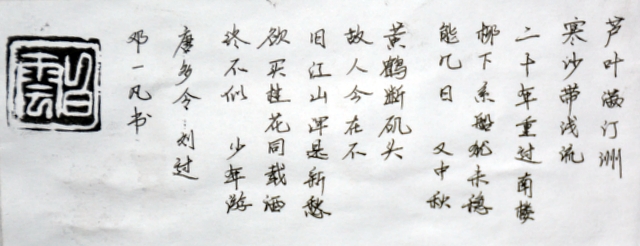 芦叶满汀洲
寒沙带浅流
二十年重过南楼
柳下系船犹未稳
能几日 又中秋
黄鹤断矶头
故人今在不
旧江山浑是新愁
欲买桂花同载酒
终不似 少年游
唐多令 刘过
邓一凡书